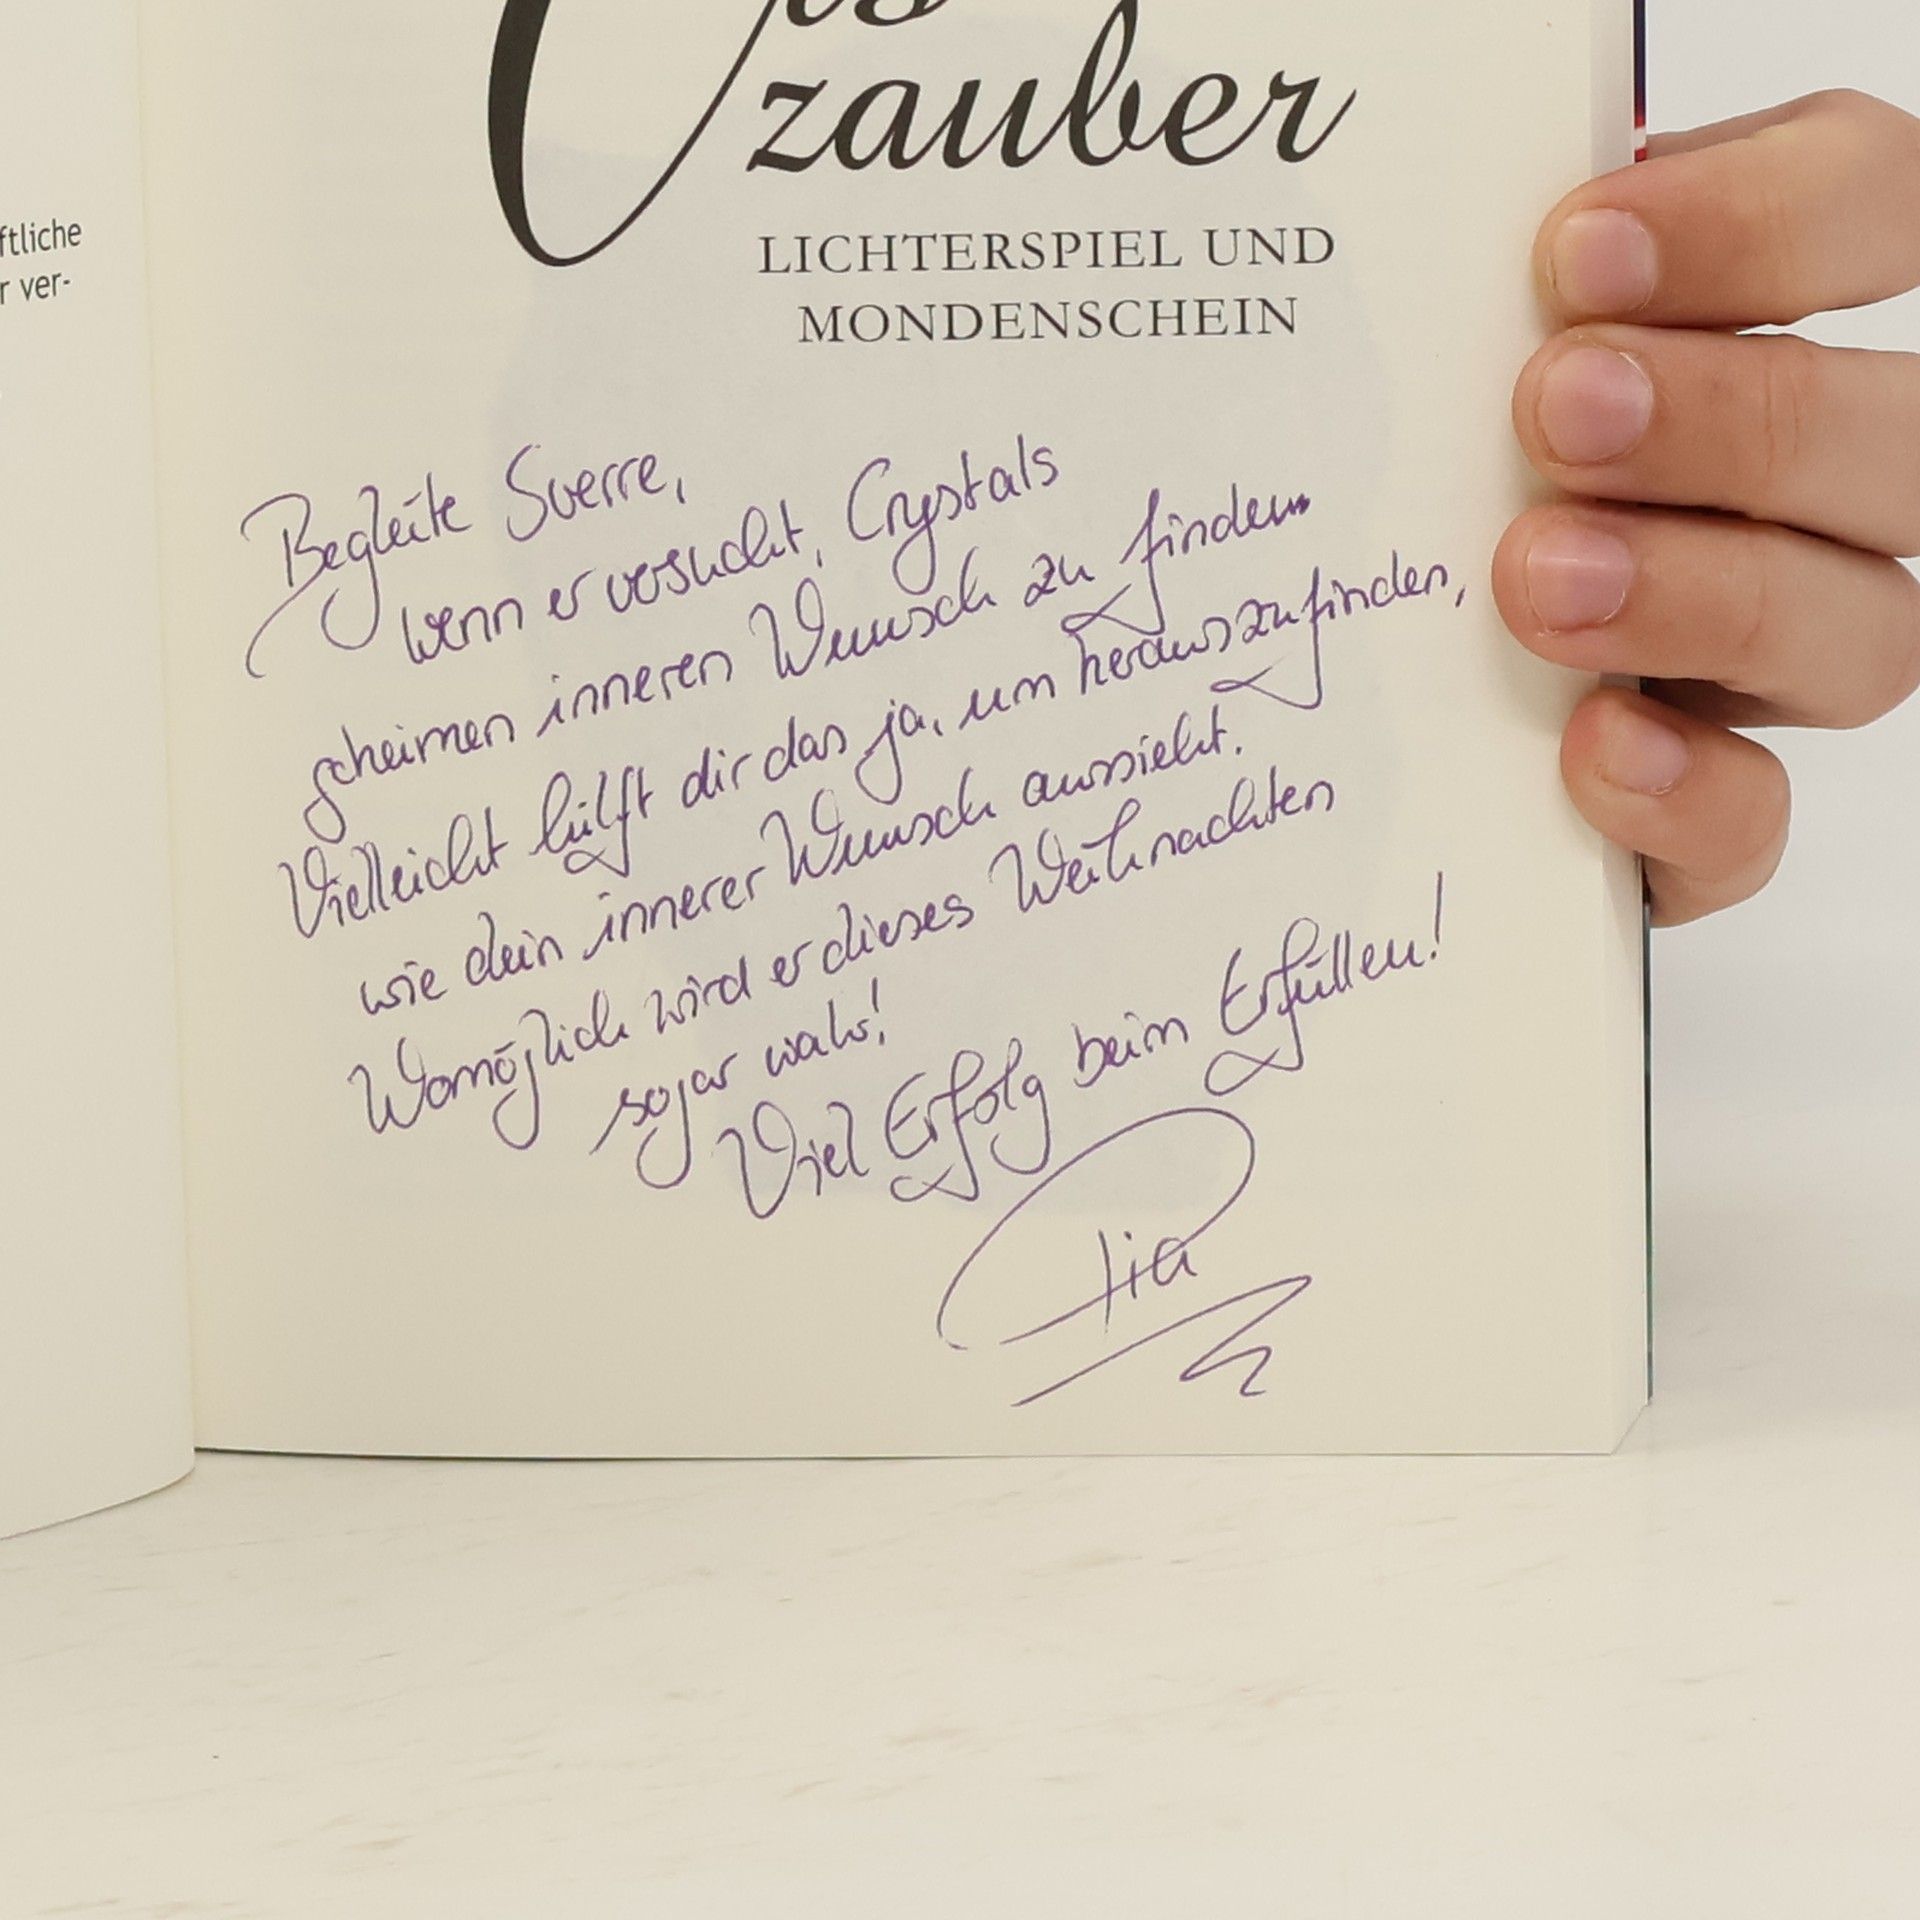 ftliche
r ver-
zauber
LICHTERSPIEL UND
MONDENSCHEIN
Begleite Sverre,
wenn er versucht, Crystals
geheimen inneren Wunsch zu finden.
Vielleicht hilft dir das ja, um herauszufinden,
wie dein innerer Wunsch aussieht.
Womöglich wird er dieses Weihnachten
sogar wahr!
Viel Erfolg beim Erfüllen!
Pia